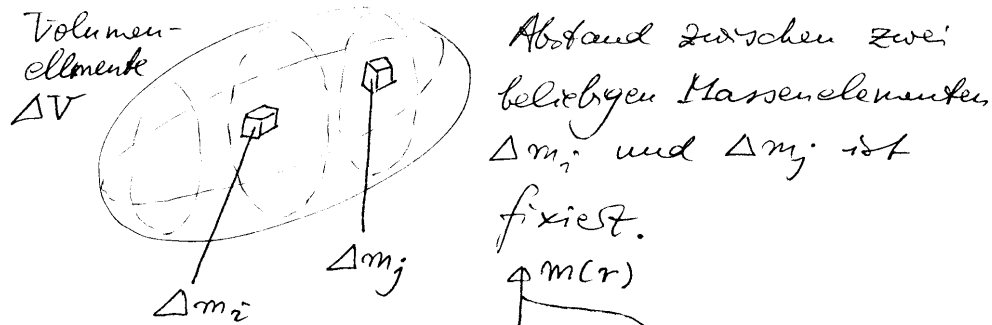 Volumen-
ellmente
ΔV
Abstand zwischen zwei
beliebigen Massenelementen
Δm_i und Δm_j ist
fixiert.
Δm_j
m(r)
Δm_i